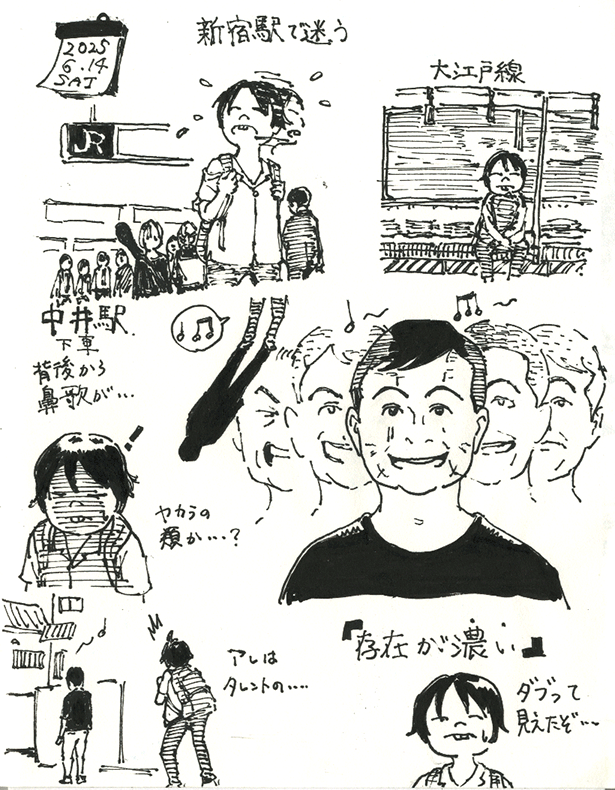 2025
6.14
SAT
新宿駅で迷う
大江戸線
JR
中井駅
下車
背後から
鼻歌が…
ヤカラの
類か…?
アレは
タレントの…
『存在が濃い』
ダブって
見えたぞ…